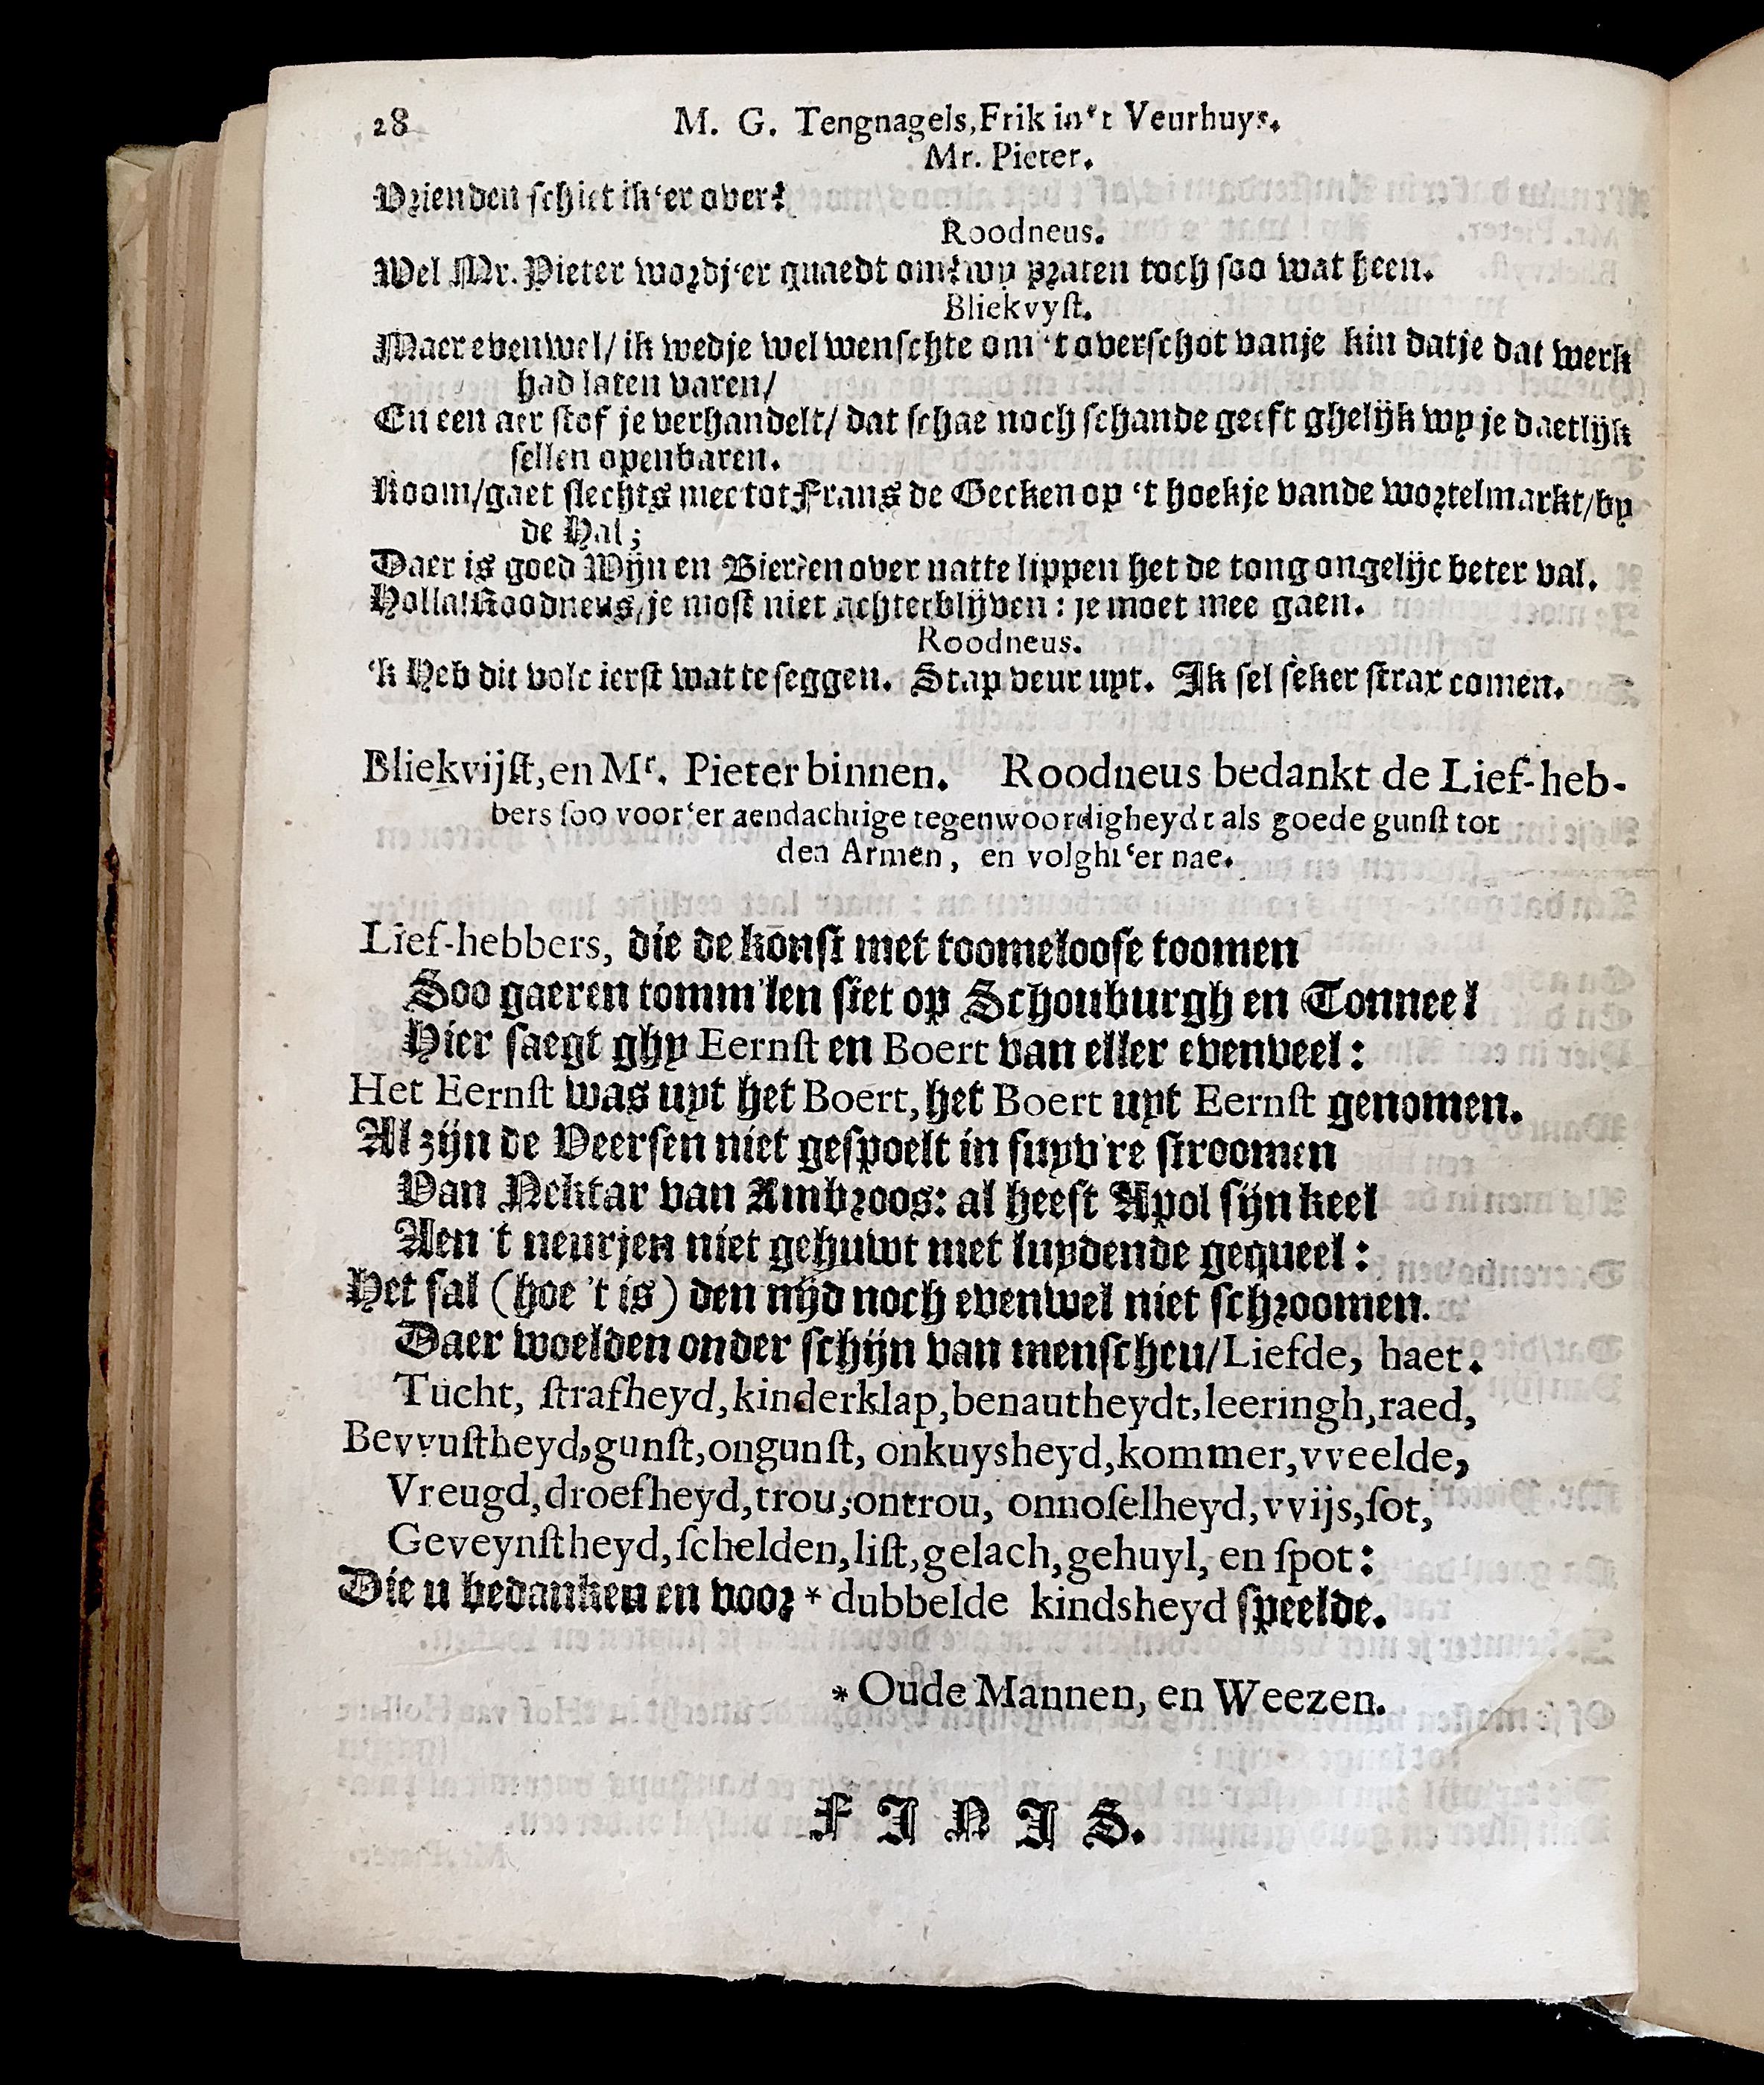 28 M. G. Tengnagels, Frik in 't Veurhuys.
Mr. Pieter.
Vrienden schiet ik 'er over?
Roodneus.
Wel Mr. Pieter wordj'er quaedt om? wy praten toch soo wat heen.
Bliekvyſt.
Maer evenwel/ ik wedje wel wenschte om 't overschot vanje kin datje dat werk
had laten varen/
En een aer stof je verhandelt/ dat schae noch schande geeft ghelijk wy je daetlijk
sellen openbaren.
Koom/ gaet slechts mee tot Frans de Gecken op 't hoekje vande wortelmarkt/ by
de Hal;
Daer is goed Wijn en Bier: en over natte lippen het de tong ongelijc beter val.
Holla! Roodneus, je most niet achterblijven: je moet mee gaen.
Roodneus.
'k Heb dit volc ierst wat te seggen. Stap veur uyt. Ik sel seker strax comen.
Bliekvijſt, en Mr. Pieter binnen. Roodneus bedankt de Lief-heb-
bers ſoo voor 'er aendachtige tegenwoordigheydt als goede gunſt tot
den Armen, en volght 'er nae.
Lief-hebbers, die de konst met toomeloose toomen
Soo gaeren tomm'len siet op Schouburgh en Tonneel
Hier saegt ghy Eernſt en Boert van eller evenveel:
Het Eernſt was uyt het Boert, het Boert uyt Eernſt genomen.
Al zijn de Veersen niet gespoelt in suyv're stroomen
Van Nektar van Ambroos: al heeft Apol sijn keel
Aen 't neurjen niet gehuwt met luydende gequeel:
Het sal (hoe 't is) den nijd noch evenwel niet schroomen.
Daer woelden onder schijn van menschen/ Liefde, haet.
Tucht, ſtrafheyd, kinderklap, benautheydt, leeringh, raed,
Bevvuſtheyd, gunſt, ongunſt, onkuysheyd, kommer, vveelde,
Vreugd, droefheyd, trou, ontrou, onnoſelheyd, vvijs, ſot,
Geveynſtheyd, ſchelden, liſt, gelach, gehuyl, en ſpot:
Die u bedanken en voor * dubbelde kindsheyd speelde.
* Oude Mannen, en Weezen.
FINIS.